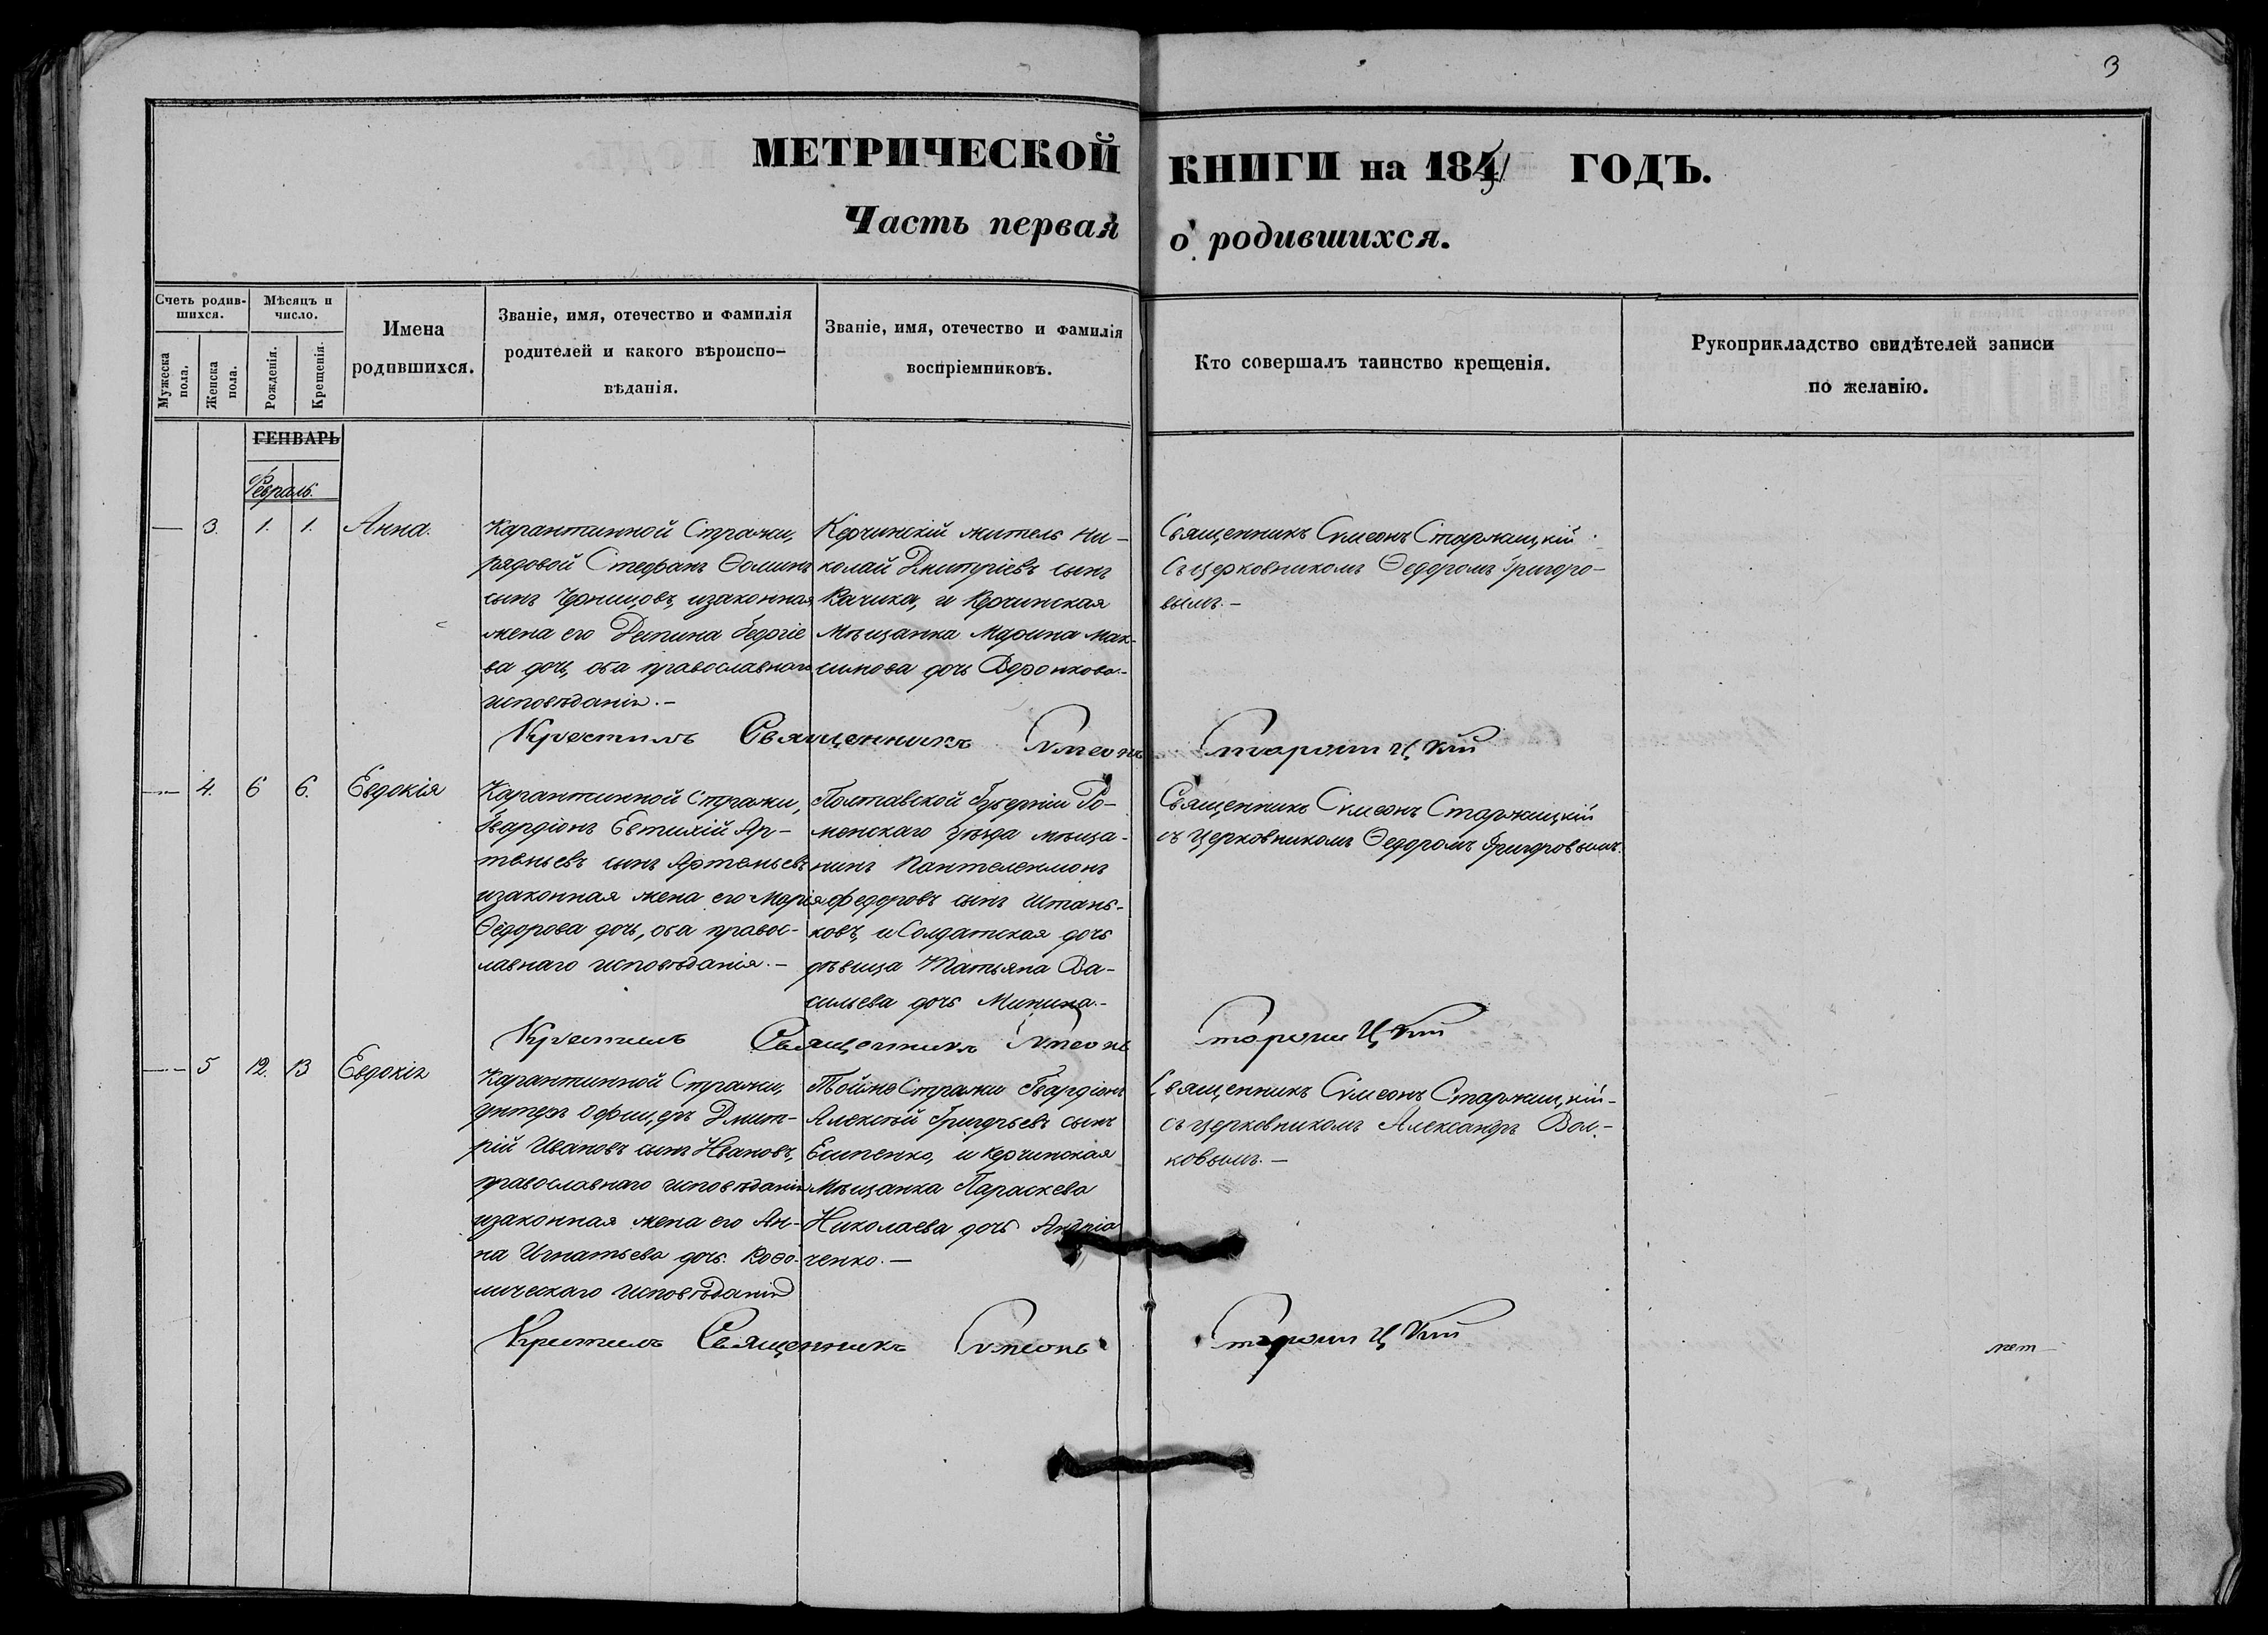 3
МЕТРИЧЕСКОЙ КНИГИ на 1851 ГОДЪ.
Часть первая о родившихся.
Счетъ родив-
шихся.
Мужеска пола.
Женска пола.
Мѣсяцъ и
число.
Рожденія.
Крещенія.
Имена
родившихся.
Званіе, имя, отечество и фамилія
родителей и какого вѣроиспо-
вѣданія.
Званіе, имя, отечество и фамилія
воспріемниковъ.
Кто совершалъ таинство крещенія.
Рукоприкладство свидѣтелей записи
по желанію.
ГЕНВАРЬ
Февраль.
— 3. 1. 1. Анна.
Карантинной Стражи,
рядовой Стефанъ Ѳоминъ
сынъ Чернцовъ, изаконная
жена его Георгіе
ва дочь, оба православнаго
исповѣданія.-
Керчинскій житель Ни-
колай Дмитріевъ сынъ
Качика, и Керчинская
Мѣщанка Марина Мак-
симова дочь Воронкова.-
Священникъ Сѵмеонъ Старжицкій
съ церковникомъ Ѳедоромъ Григоро-
вымъ.-
Крестилъ Священникъ Сѵмеонъ Старжицкій
— 4. 6 6. Евдокія
Карантинной Стражи,
Гвардіонъ Евтихій Ар-
темьевъ сынъ Артемьевъ
изаконная жена его Марія
Ѳедорова дочь, оба правос-
лавнаго исповѣданія.-
Полтавской Губерніи Ро-
менскаго уѣзда мѣща-
нинъ Пантелеимонъ
Федоровъ сынъ Штань-
ковъ, и Солдатская дочь
дѣвица Татьяна Ва-
сильева дочь Минина.-
Священникъ Сѵмеонъ Старжицкій
съ церковникомъ Ѳедоромъ Григоровымъ.
Крестилъ Священникъ Сѵмеонъ Старжицкій
— 5 12. 13 Евдокія
Карантинной Стражи,
унтеръ Офицеръ Дмит-
рій Ивановъ сынъ Ивановъ,
православнаго исповѣданія
изаконная жена его Ан-
на Игнатьева дочь. Каѳо-
лическаго исповѣданія
Тойже Стражи Гвардіонъ
Алексѣй Григорьевъ сынъ
Есипенко, и Керчинская
Мѣщанка Параскева
Николаева дочь Андріа
ченко.-
Священникъ Сѵмеонъ Старжицкій-
съ церковникомъ Александръ Вол-
ковымъ.-
Крестилъ Священникъ Сѵмеонъ Старжицкій